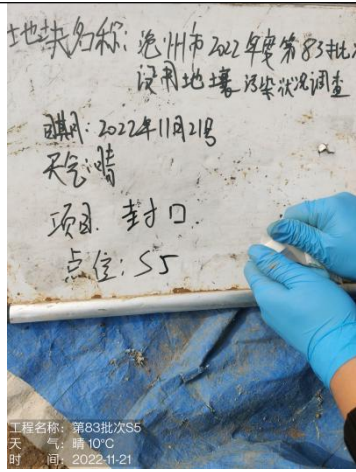 地块名称：沧州市2022年度第83批次
设用地土壤污染状况调查
日期：2022年11月21号
天气：晴
项目：封口
点位：S5
工程名称：第83批次S5
天 气：晴 10℃
时 间：2022-11-21